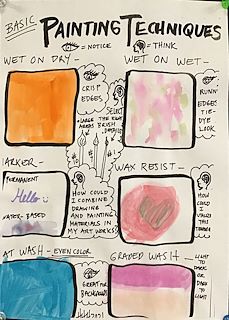 BASIC
PAINTING TECHNIQUES
=NOTICE =THINK
WET ON DRY-
WET ON WET-
CRISP
EDGES
SELECT
THE RIGHT
BRUSH
LARGE
AREAS
RUNNY
EDGES
TIE-
DYE
LOOK
MARKER-
PERMANENT
Hello
WATER-BASED
HOW COULD
I COMBINE
DRAWING
AND PAINTING
MATERIALS IN
MY ART WORKS?
WAX RESIST-
HOW
COULD
I
THIS
AT WASH-EVEN COLOR
GREAT FOR
GRADED WASH-
LIGHT
TO
DARK
OR
DARK
TO
LIGHT